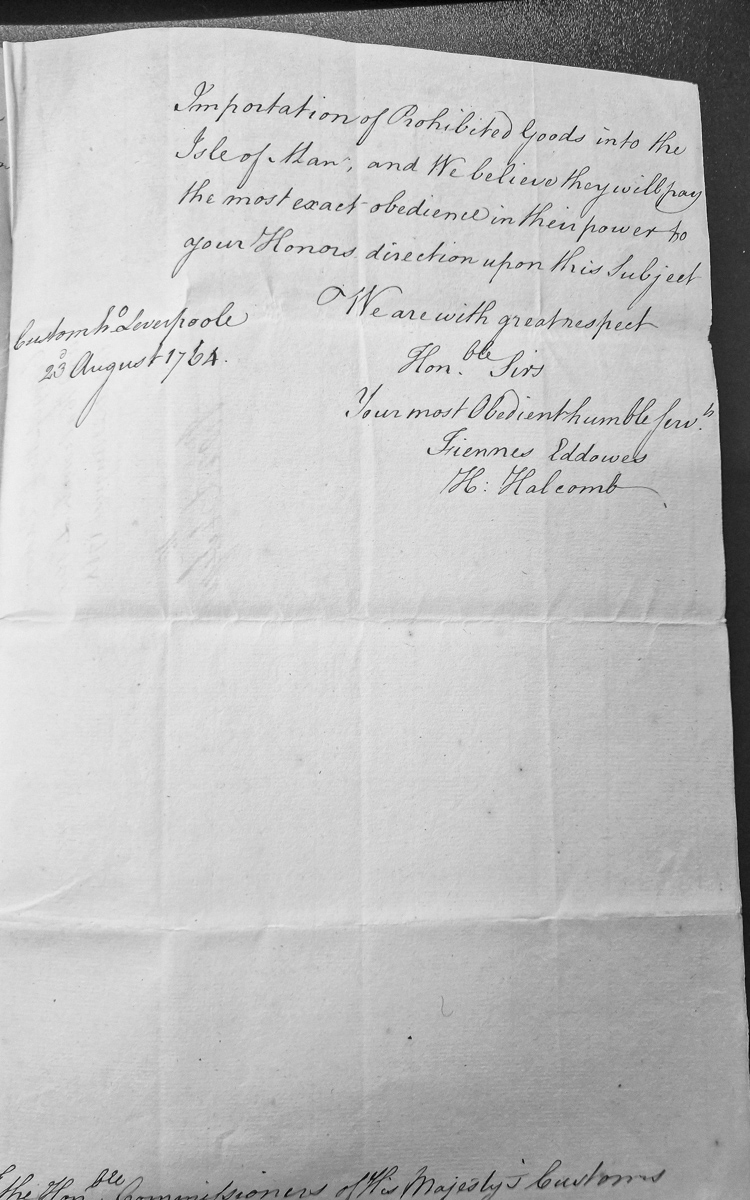 Importation of Prohibited Goods into the
Isle of Man, and We believe they will pay
the most exact obedience in their power to
your Honors direction upon this Subject
We are with great respect
Customho Leverpoole
23d August 1764.
Honble Sirs
Your most Obedient humble Servts
Fiennes Eddowes
H: Halcomb
The Honble Commissioners of His Majesty's Customs